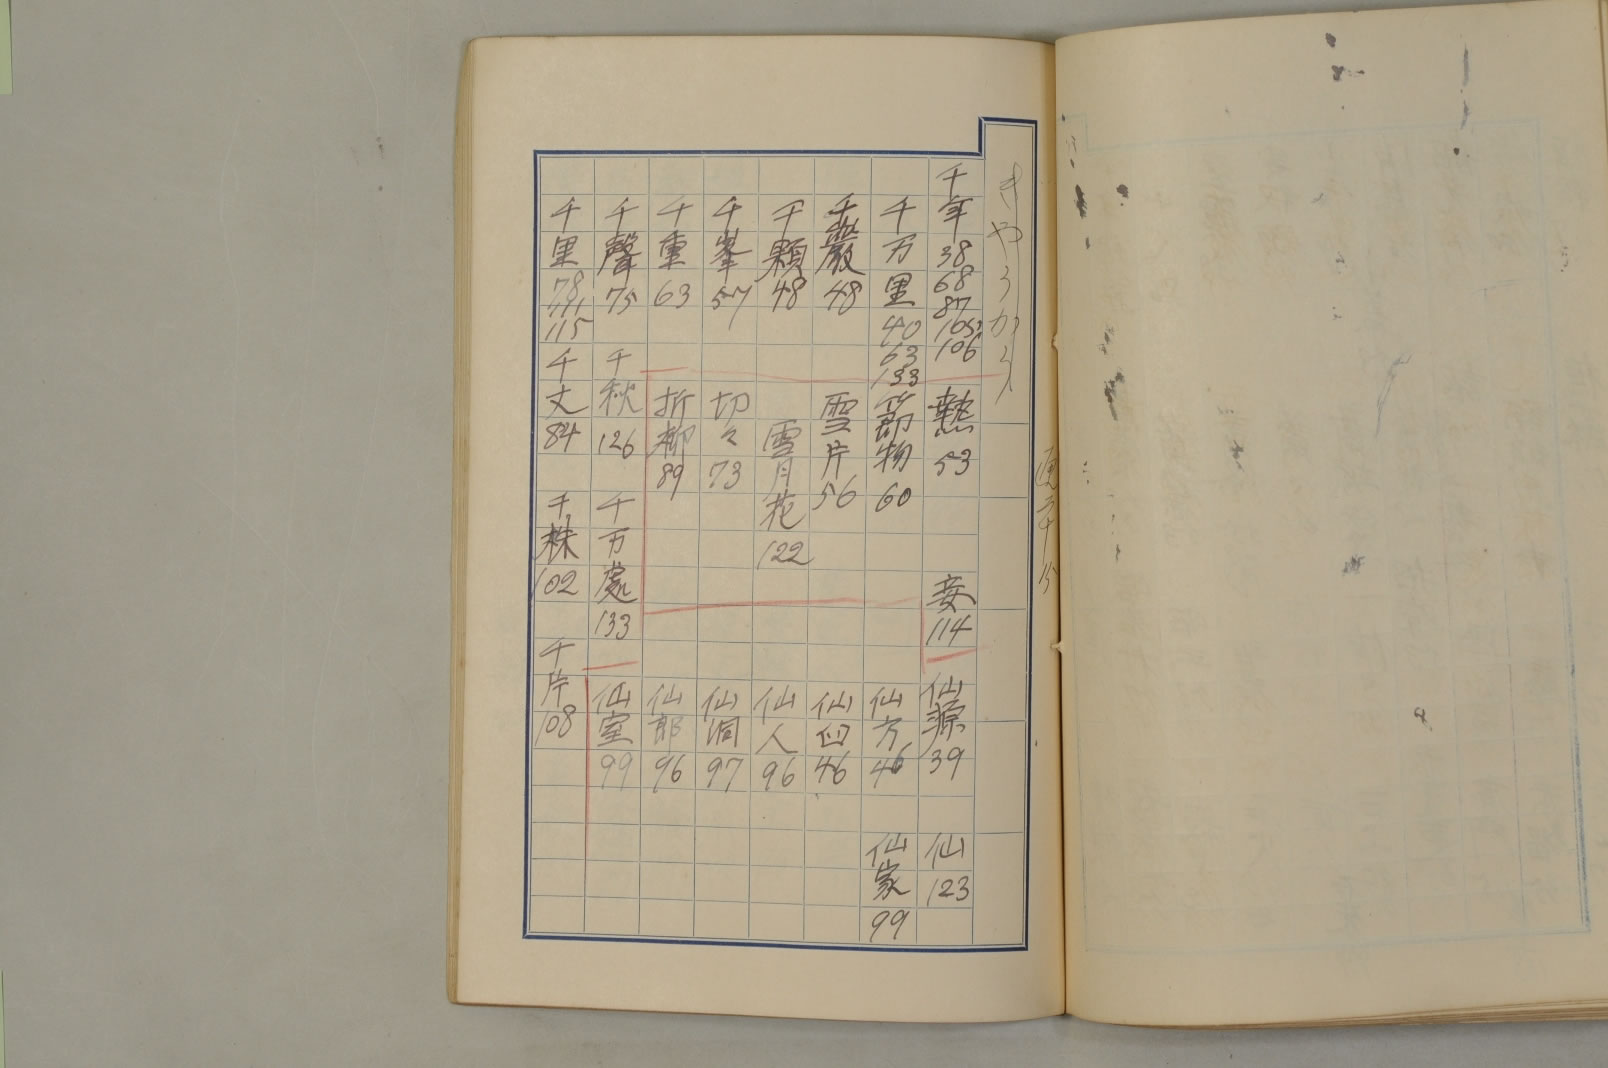 きやうかく
千年 38 68 87 105 106 熱 53 妾 114 仙源 39 仙 123
千万里 40 63 133 節物 60 仙方 46 仙家 99
千巖 48 雪片 56 仙臼 46
千顆 48 雪月花 122 仙人 96
千峯 57 切々 73 仙洞 97
千重 63 折柳 89 仙郎 96
千聲 75 千秋 126 千万處 133 仙室 99
千里 78 111 115 千丈 84 千株 102 千片 108